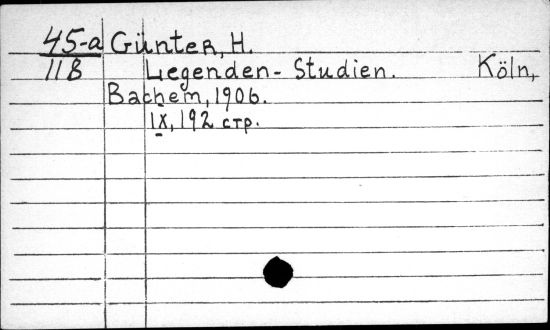 45-a Günter, H.
118 Legenden-Studien. Köln,
Bachem, 1906.
IX, 192 стр.